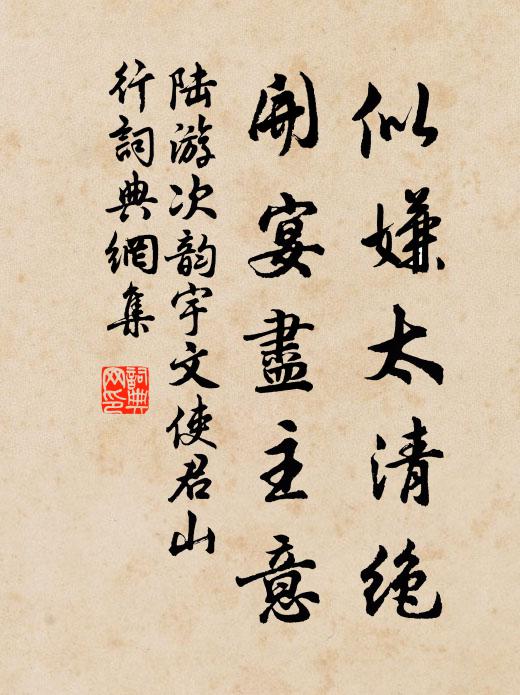 似嫌太清绝
開宴盡主意
陆游次韵宇文使君山
行詞典網集
詞典
网印